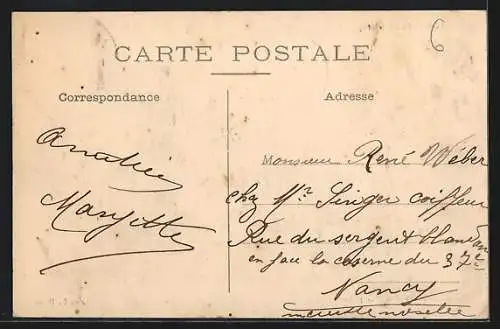 6
CARTE POSTALE
Correspondance
Adresse
Monsieur René Wéber
chez Mr Singer coiffeur
Rue du sergent blandan
en face la caserne du 37e
Nancy
meurthe moselle